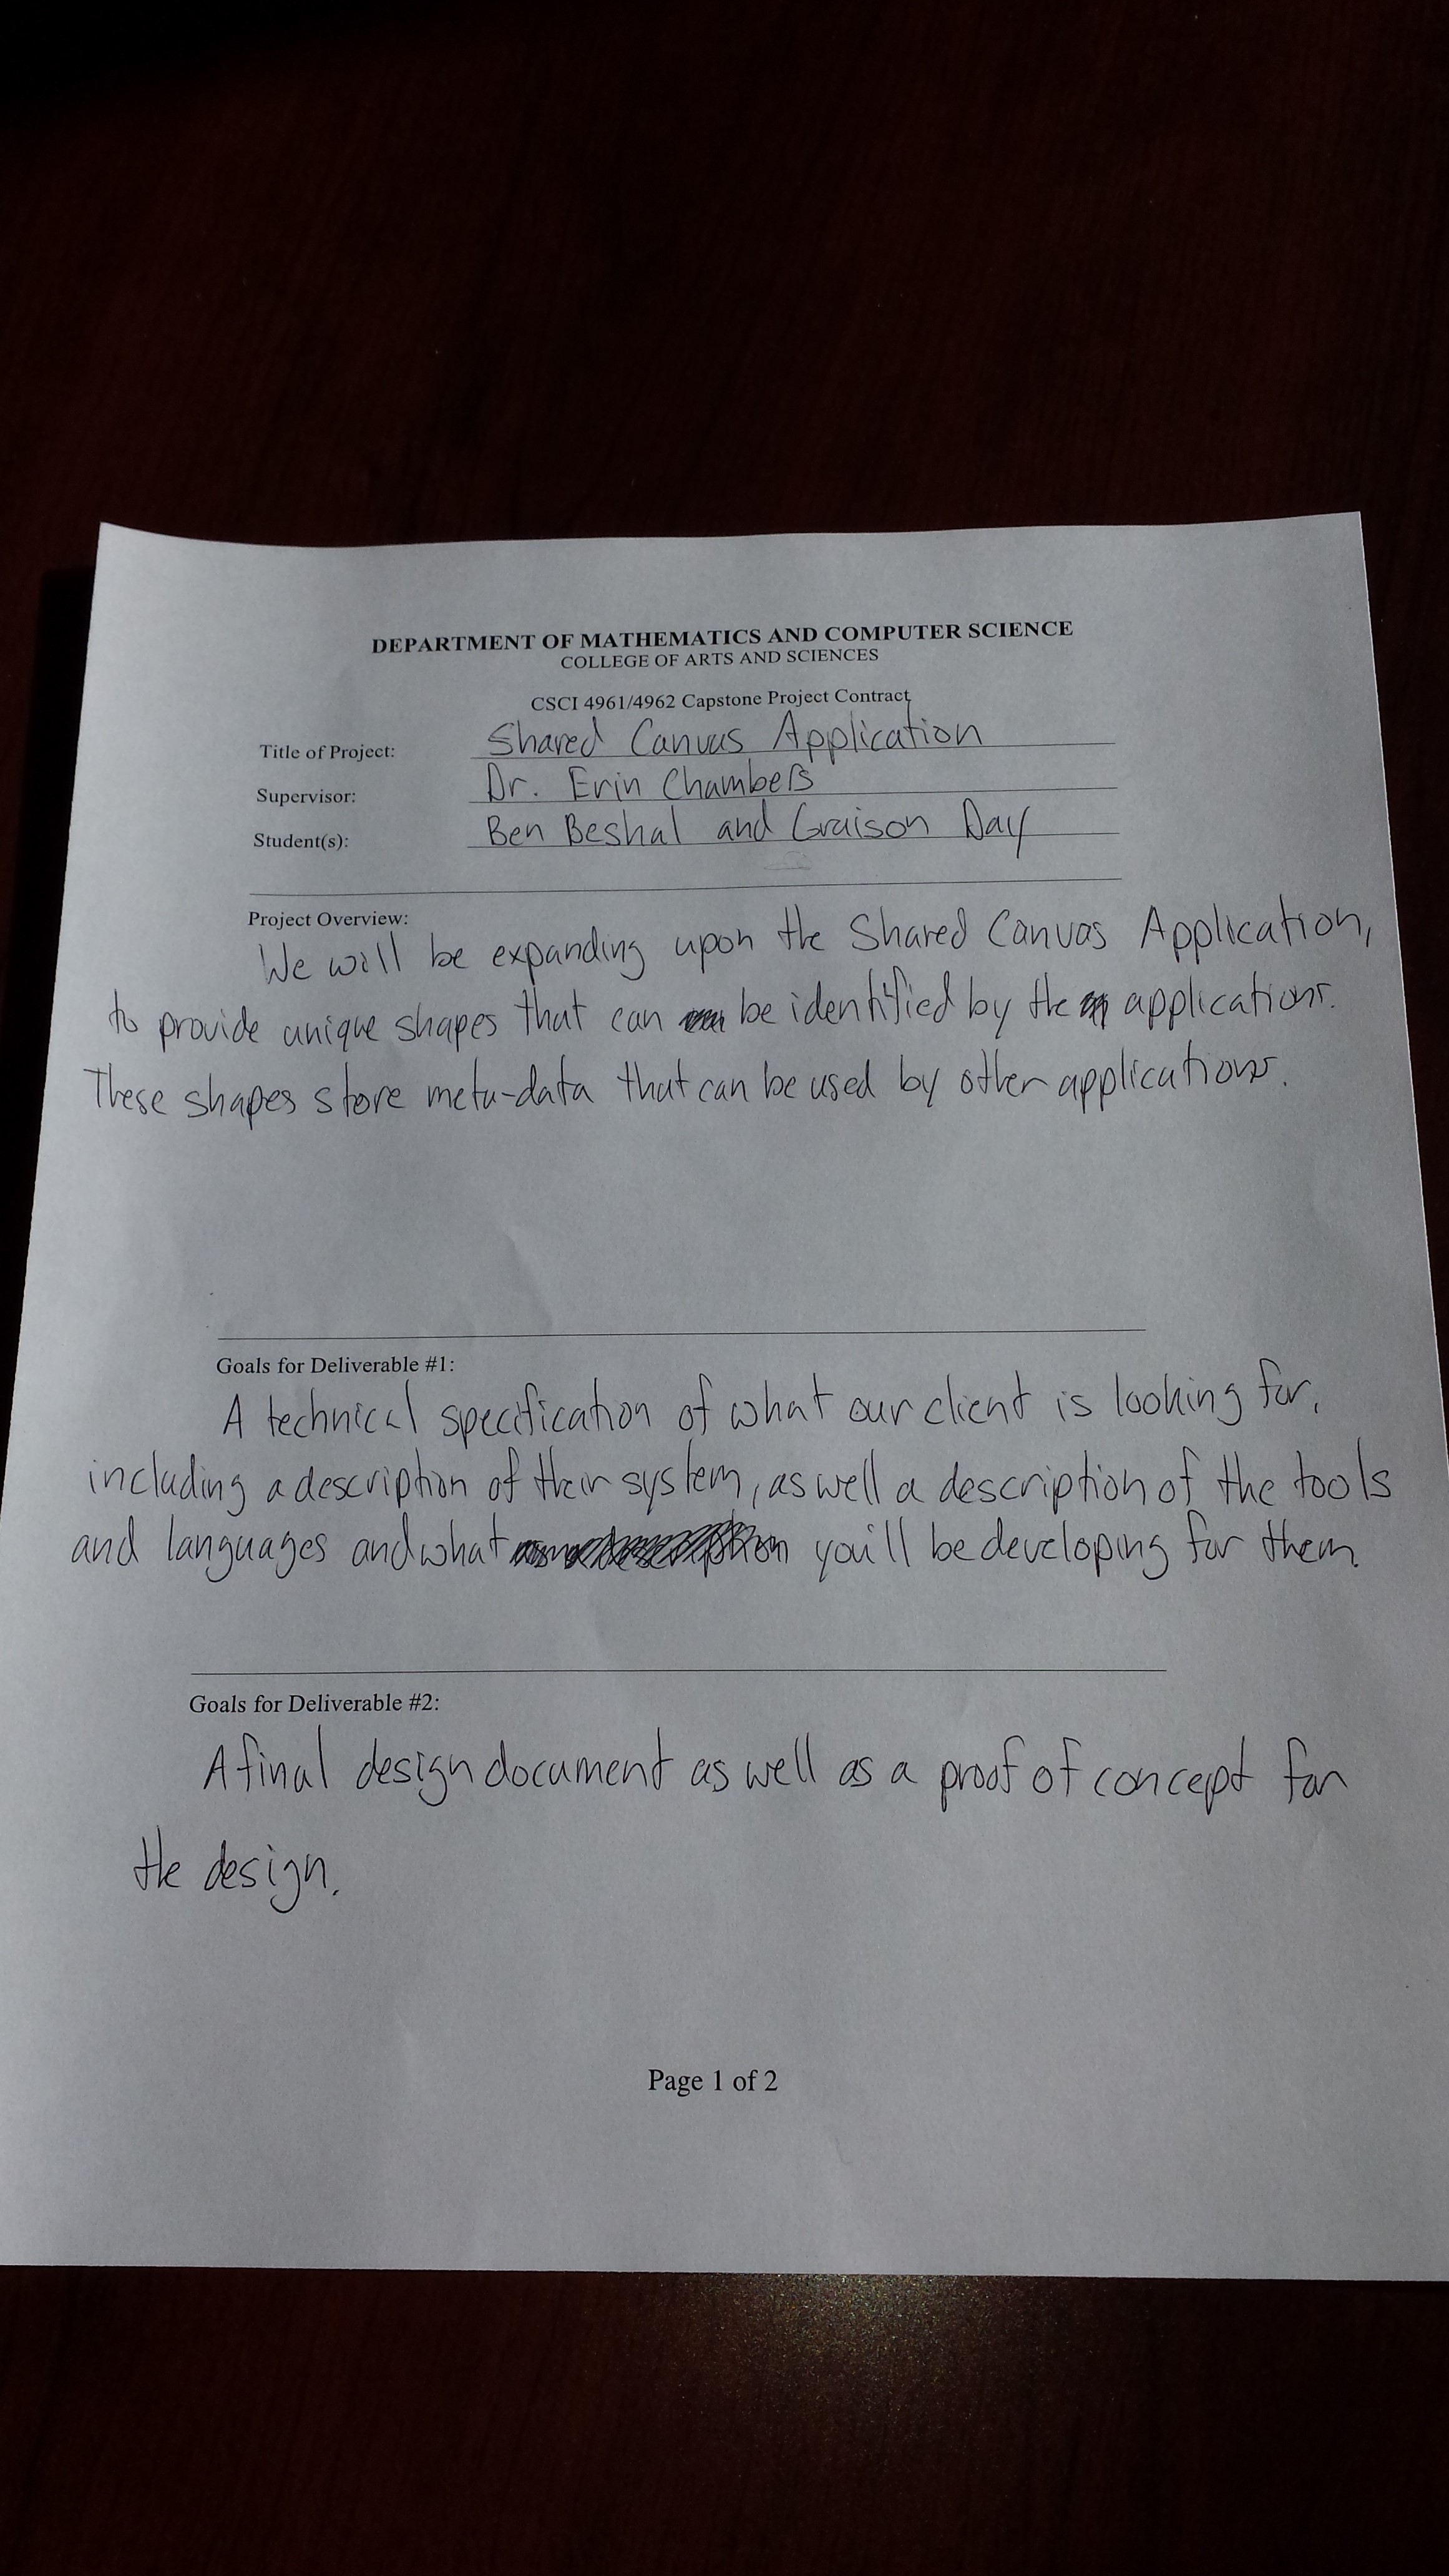 DEPARTMENT OF MATHEMATICS AND COMPUTER SCIENCE
COLLEGE OF ARTS AND SCIENCES
CSCI 4961/4962 Capstone Project Contract
Title of Project: Shared Canvas Application
Supervisor: Dr. Erin Chambers
Student(s): Ben Beshal and Graison Day
Project Overview:
We will be expanding upon the Shared Canvas Application,
to provide unique shapes that can be identified by the applications.
These shapes store meta-data that can be used by other applications.
Goals for Deliverable #1:
A technical specification of what our client is looking for,
including a description of their system, as well a description of the tools
and languages and what you'll be developing for them.
Goals for Deliverable #2:
A final design document as well as a proof of concept for
the design.
Page 1 of 2